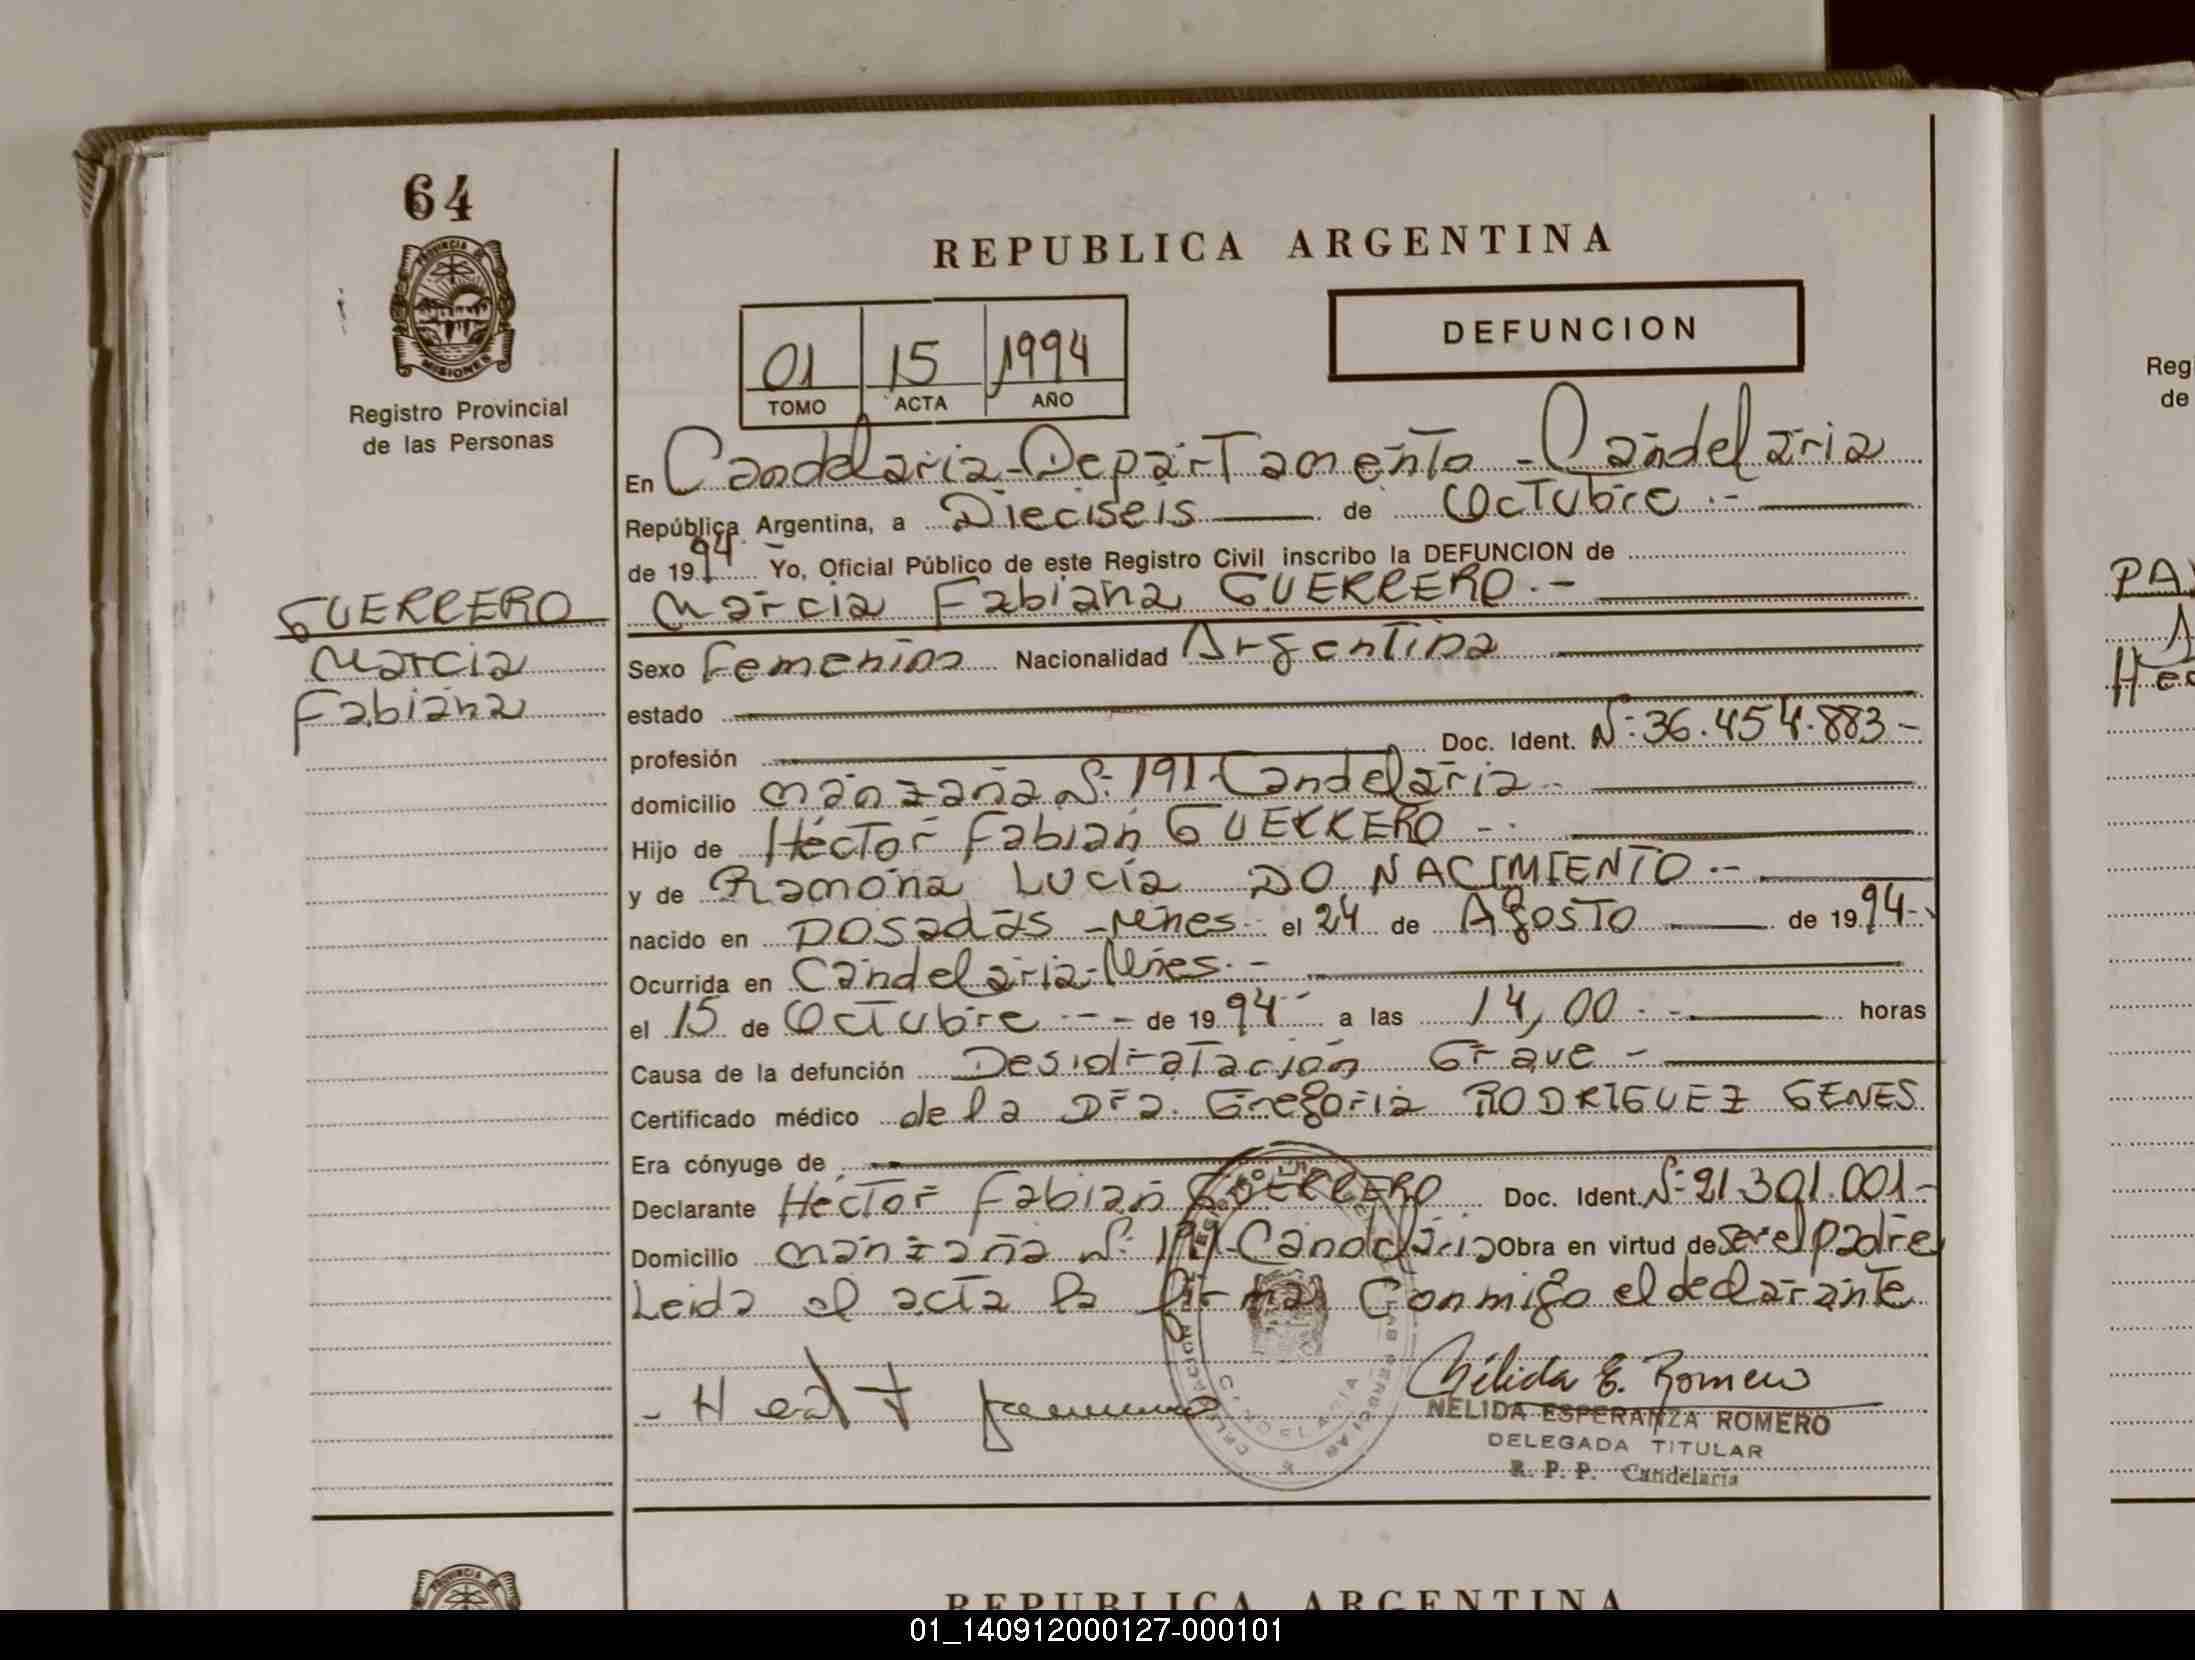 64
PROVINCIA DE
MISIONES
Registro Provincial
de las Personas
GUERRERO
Marcia
Fabiana
REPUBLICA ARGENTINA
01 15 1994
TOMO ACTA AÑO
DEFUNCION
En Candelaria-Departamento - Candelaria
República Argentina, a Dieciseis de Octubre.-
de 1994. Yo, Oficial Público de este Registro Civil inscribo la DEFUNCION de
Marcia Fabiana GUERRERO.-
Sexo Femenino Nacionalidad Argentina
estado
profesión Doc. Ident. Nº: 36.454.883-
domicilio manzana Nº: 191-Candelaria-
Hijo de Héctor Fabian GUERRERO -.
y de Ramona Lucia DO NACIMIENTO.-
nacido en Posadas -Mnes. el 24 de Agosto de 1994-
Ocurrida en Candelaria-Mnes.-
el 15 de Octubre --- de 1994 a las 14,00.- horas
Causa de la defunción Desidratación Grave-
Certificado médico de la Dra. Gregoria RODRIGUEZ GENES
Era cónyuge de
Declarante Héctor Fabian GUERRERO Doc. Ident. Nº: 21.301.001-
Domicilio manzana Nº: 191-Candelaria Obra en virtud de ser el padre
Leida el acta la firma Conmigo el declarante
Nélida E. Romero
NELIDA ESPERANZA ROMERO
DELEGADA TITULAR
R. P. P. Candelaria
PROVINCIA DE
REPUBLICA ARGENTINA
Reg
de
PA
Hec
01_140912000127-000101